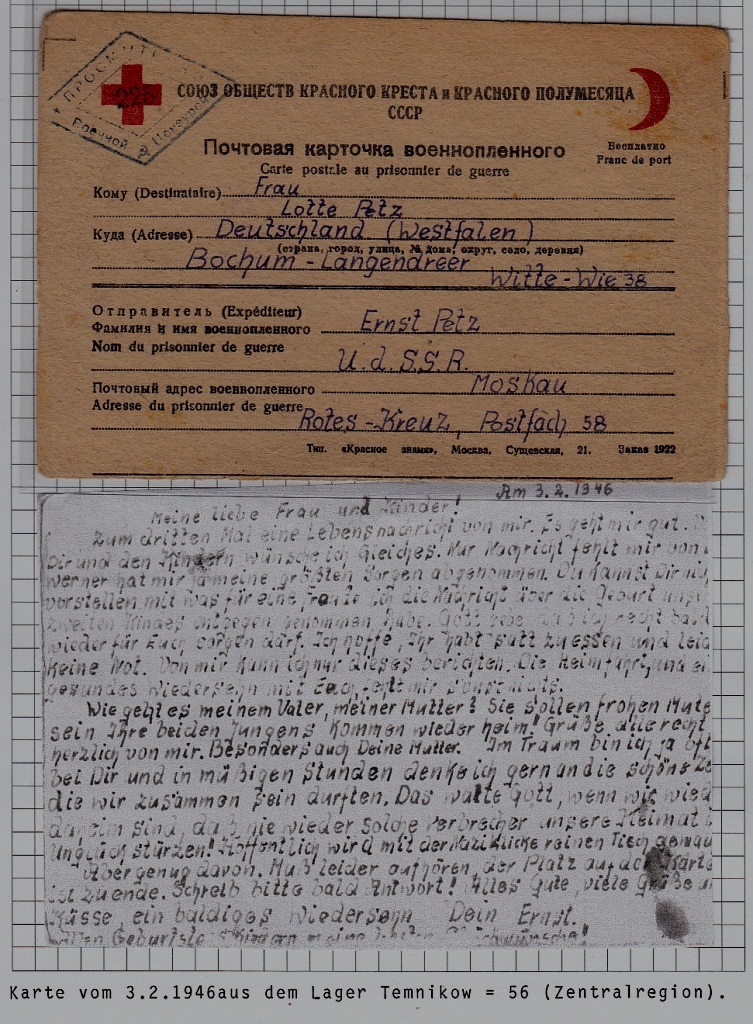 ПРОСМОТРЕНО
Военной Цензурой
228
СОЮЗ ОБЩЕСТВ КРАСНОГО КРЕСТА и КРАСНОГО ПОЛУМЕСЯЦА
СССР
Почтовая карточка военнопленного
Carte postale au prisonnier de guerre
Бесплатно
Franc de port
Кому (Destinataire) Frau
Lotte Petz
Куда (Adresse) Deutschland (Westfalen)
(страна, город, улица, № дома, округ, село, деревня)
Bochum - Langendreer
Witte - Wie 38
Отправитель (Expéditeur)
Фамилия и имя военнопленного Ernst Petz
Nom du prisonnier de guerre
U.d.S.S.R.
Почтовый адрес военнопленного Moskau
Adresse du prisonnier de guerre Rotes-Kreuz, Postfach 58
Тип. «Красное знамя», Москва, Сущевская, 21. Заказ 1922
Am 3.2.1946
Meine liebe Frau und Kinder!
Zum dritten Mal eine Lebensnachricht von mir. Es geht mir gut.
Dir und den Kindern wünsche ich Gleiches. Nur Nachricht fehlt mir von
Werner hat mir ja meine größten Sorgen abgenommen. Du kannst Dir
vorstellen mit was für eine Freude ich die Nachricht über die Geburt
zweiten Kindes entgegen genommen habe. Gott gebe, daß ich recht bald
wieder für Euch sorgen darf. Ich hoffe, Ihr habt satt zu essen und
keine Not. Von mir kann ich nur dieses berichten. Die Heimfahrt, und
gesundes Wiedersehn mit Euch, fehlt mir sonst nichts.
Wie geht es meinem Vater, meiner Mutter? Sie sollen frohen Mute
sein Ihre beiden Jungens kommen wieder heim! Grüße alle recht
herzlich von mir. Besonders auch Deine Mutter. Im Traum bin ich ja
bei Dir und in müßigen Stunden denke ich gern an die schöne
die wir zusammen sein durften. Das walte Gott, wenn wir
daheim sind, daß nie wieder solche Verbrecher unsere Heimat
Unglück stürzen! Hoffentlich wird mit der Naziklicke reinen Tisch
Übergenug davon. Muß leider aufhören, der Platz auf der Karte
ist zuende. Schreib bitte bald Antwort! Alles Gute, viele Grüße
Küsse, ein baldiges Wiedersehn Dein Ernst.
Allen
Karte vom 3.2.1946aus dem Lager Temnikow = 56 (Zentralregion).